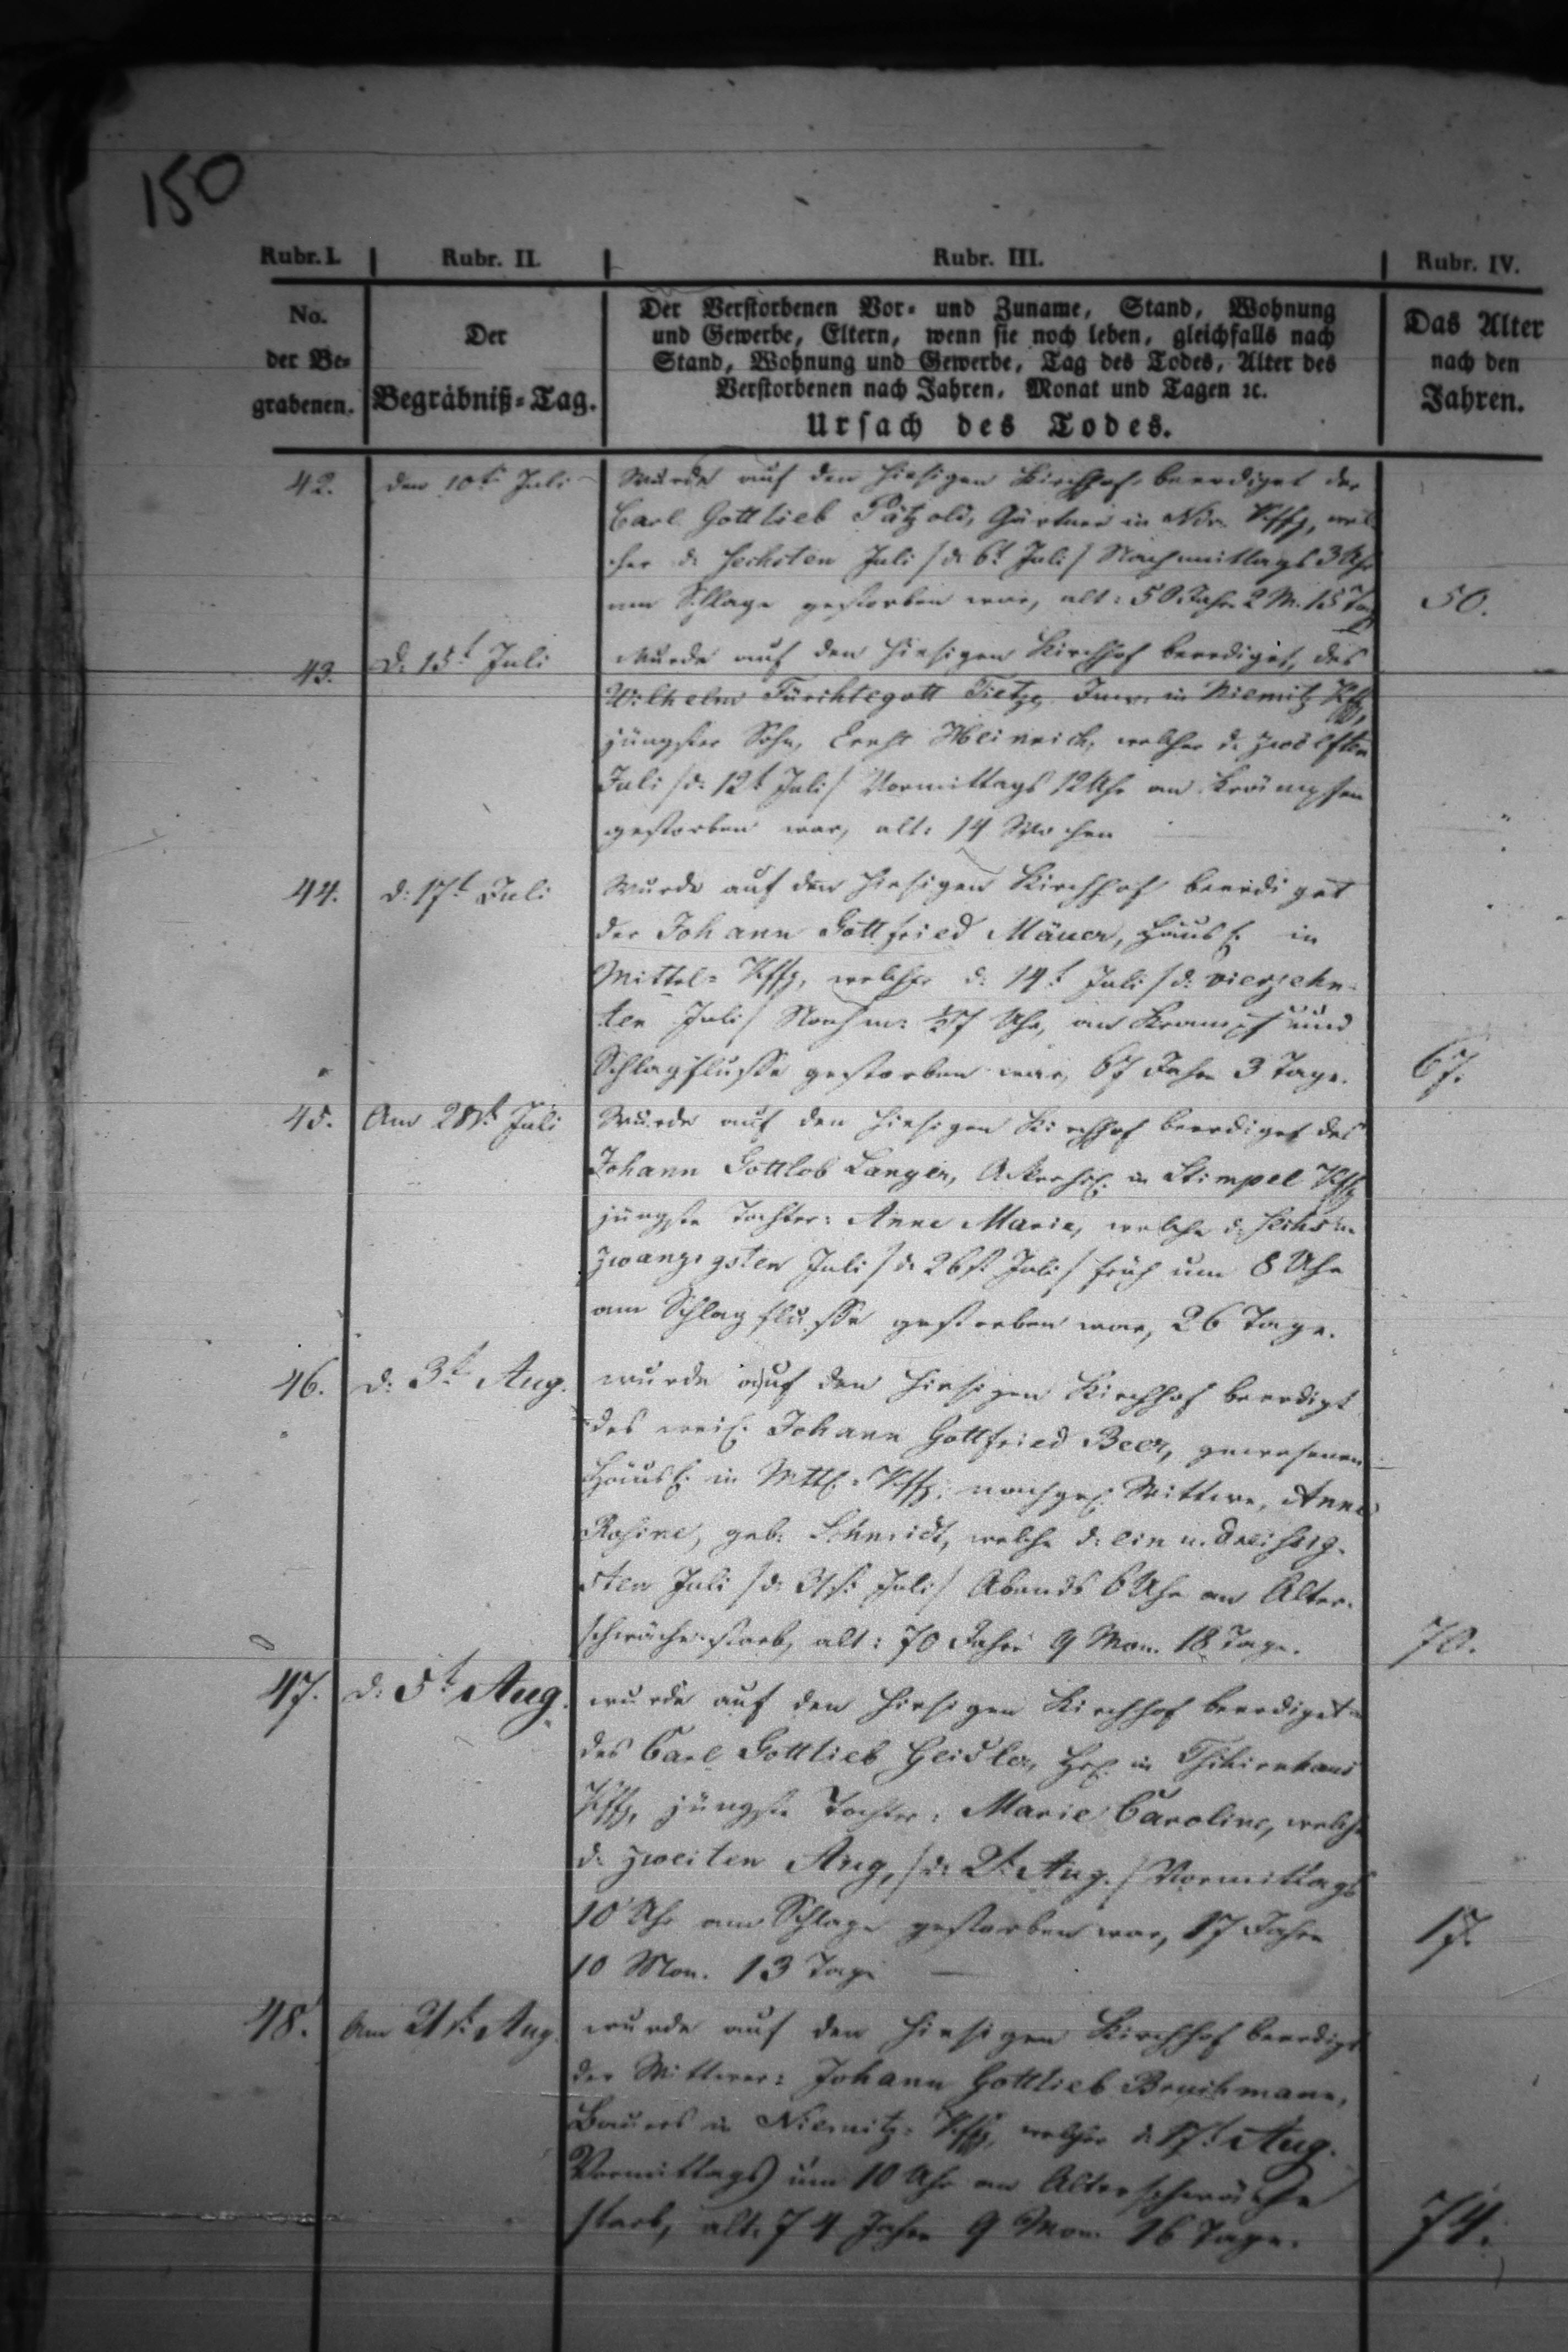 150
Rubr. I. Rubr. II. Rubr. III. Rubr. IV.
No. der Be= grabenen.
Der Begräbniß=Tag.
Der Verstorbenen Vor= und Zuname, Stand, Wohnung
und Gewerbe, Eltern, wenn sie noch leben, gleichfalls nach
Stand, Wohnung und Gewerbe, Tag des Todes, Alter des
Verstorbenen nach Jahren, Monat und Tagen ꝛc.
Ursach des Todes.
Das Alter nach den Jahren.
42. den 10t. Juli Wurde auf den hiesigen Kirchhof beerdiget der
Carl Gottlieb Pätzold, Gärtner in Ndr. Kffg, wel-
cher d. sechsten Juli /d. 6t. Juli/ Nachmittags 3 Uhr
am Schlage gestorben war, alt: 50 Jahr 2 M. 15 Tag 50.
43. d. 15t. Juli Wurde auf den hiesigen Kirchhof beerdiget, des
Wilhelm Fürchtegott Tietze, Inw. in Niemitz Kffg,
jüngster Sohn, Ernst Heinrich, welcher d. zwölften
Juli /d. 12t. Juli/ Vormittags 12 Uhr an Krämpfen
gestorben war, alt: 14 Wochen
44. d. 17t. Juli Wurde auf den hiesigen Kirchhof beerdiget
der Johann Gottfried Mäuer, Häusl. in
Mittel=Kffg, welcher d. 14t. Juli /d. vierzehn-
ten Juli/ Nachm: ½7 Uhr, an Krampf und
Schlagflusse gestorben war, 67 Jahr 3 Tage. 67.
45. Am 28st. Juli Wurde auf den hiesigen Kirchhof beerdiget des
Johann Gottlob Langer, in Stimpel Kffg
jüngste Tochter: Anne Marie, welche d. sechs u.
zwanzigsten Juli /d. 26st. Juli/ früh um 8 Uhr
am Schlagflusse gestorben war, 26 Tage.
46. d. 3t. Aug. wurde auf den hiesigen Kirchhof beerdigt
des weil. Johann Gottfried Beer, gewesenen
Häusl. in Mttl. Kffg. nachgel. Wittwe, Anne
Rosine, geb. Schmidt, welche d. ein u. dreißig-
sten Juli /d. 31st. Juli/ Abends 6 Uhr an Alter-
schwäche starb, alt: 70 Jahre 9 Mon. 18 Tage. 70.
47. d. 5t. Aug. wurde auf den hiesigen Kirchhof beerdiget
des Carl Gottlieb Geisler, Hsl. in Tschirnhaus
Kffg, jüngste Tochter: Marie Caroline, welche
d. zweiten Aug, /d. 2t. Aug./ Vormittags
10 Uhr am Schlage gestorben war, 17 Jahre 17.
10 Mon. 13 Tage
48. Am 21st. Aug. wurde auf den hiesigen Kirchhof beerdigt
der Wittwer: Johann Gottlieb Bruchmann,
Bauers in Niemitz-Kffg, welcher d. 17t. Aug.
Vormittags um 10 Uhr an Alterschwäche
starb, alt: 74 Jahre 9 Mon. 16 Tage. 74.